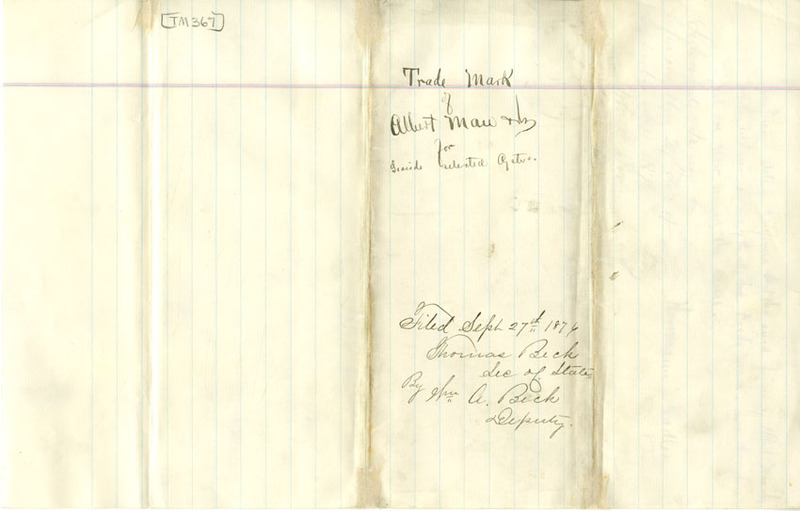 [TM367]
Trade Mark
of
Albert Mau & Co
for
Inside selected Oysters.
Filed Sept 27th 1876
Thomas Beck
Sec of State
By Wm A. Beck
Deputy.